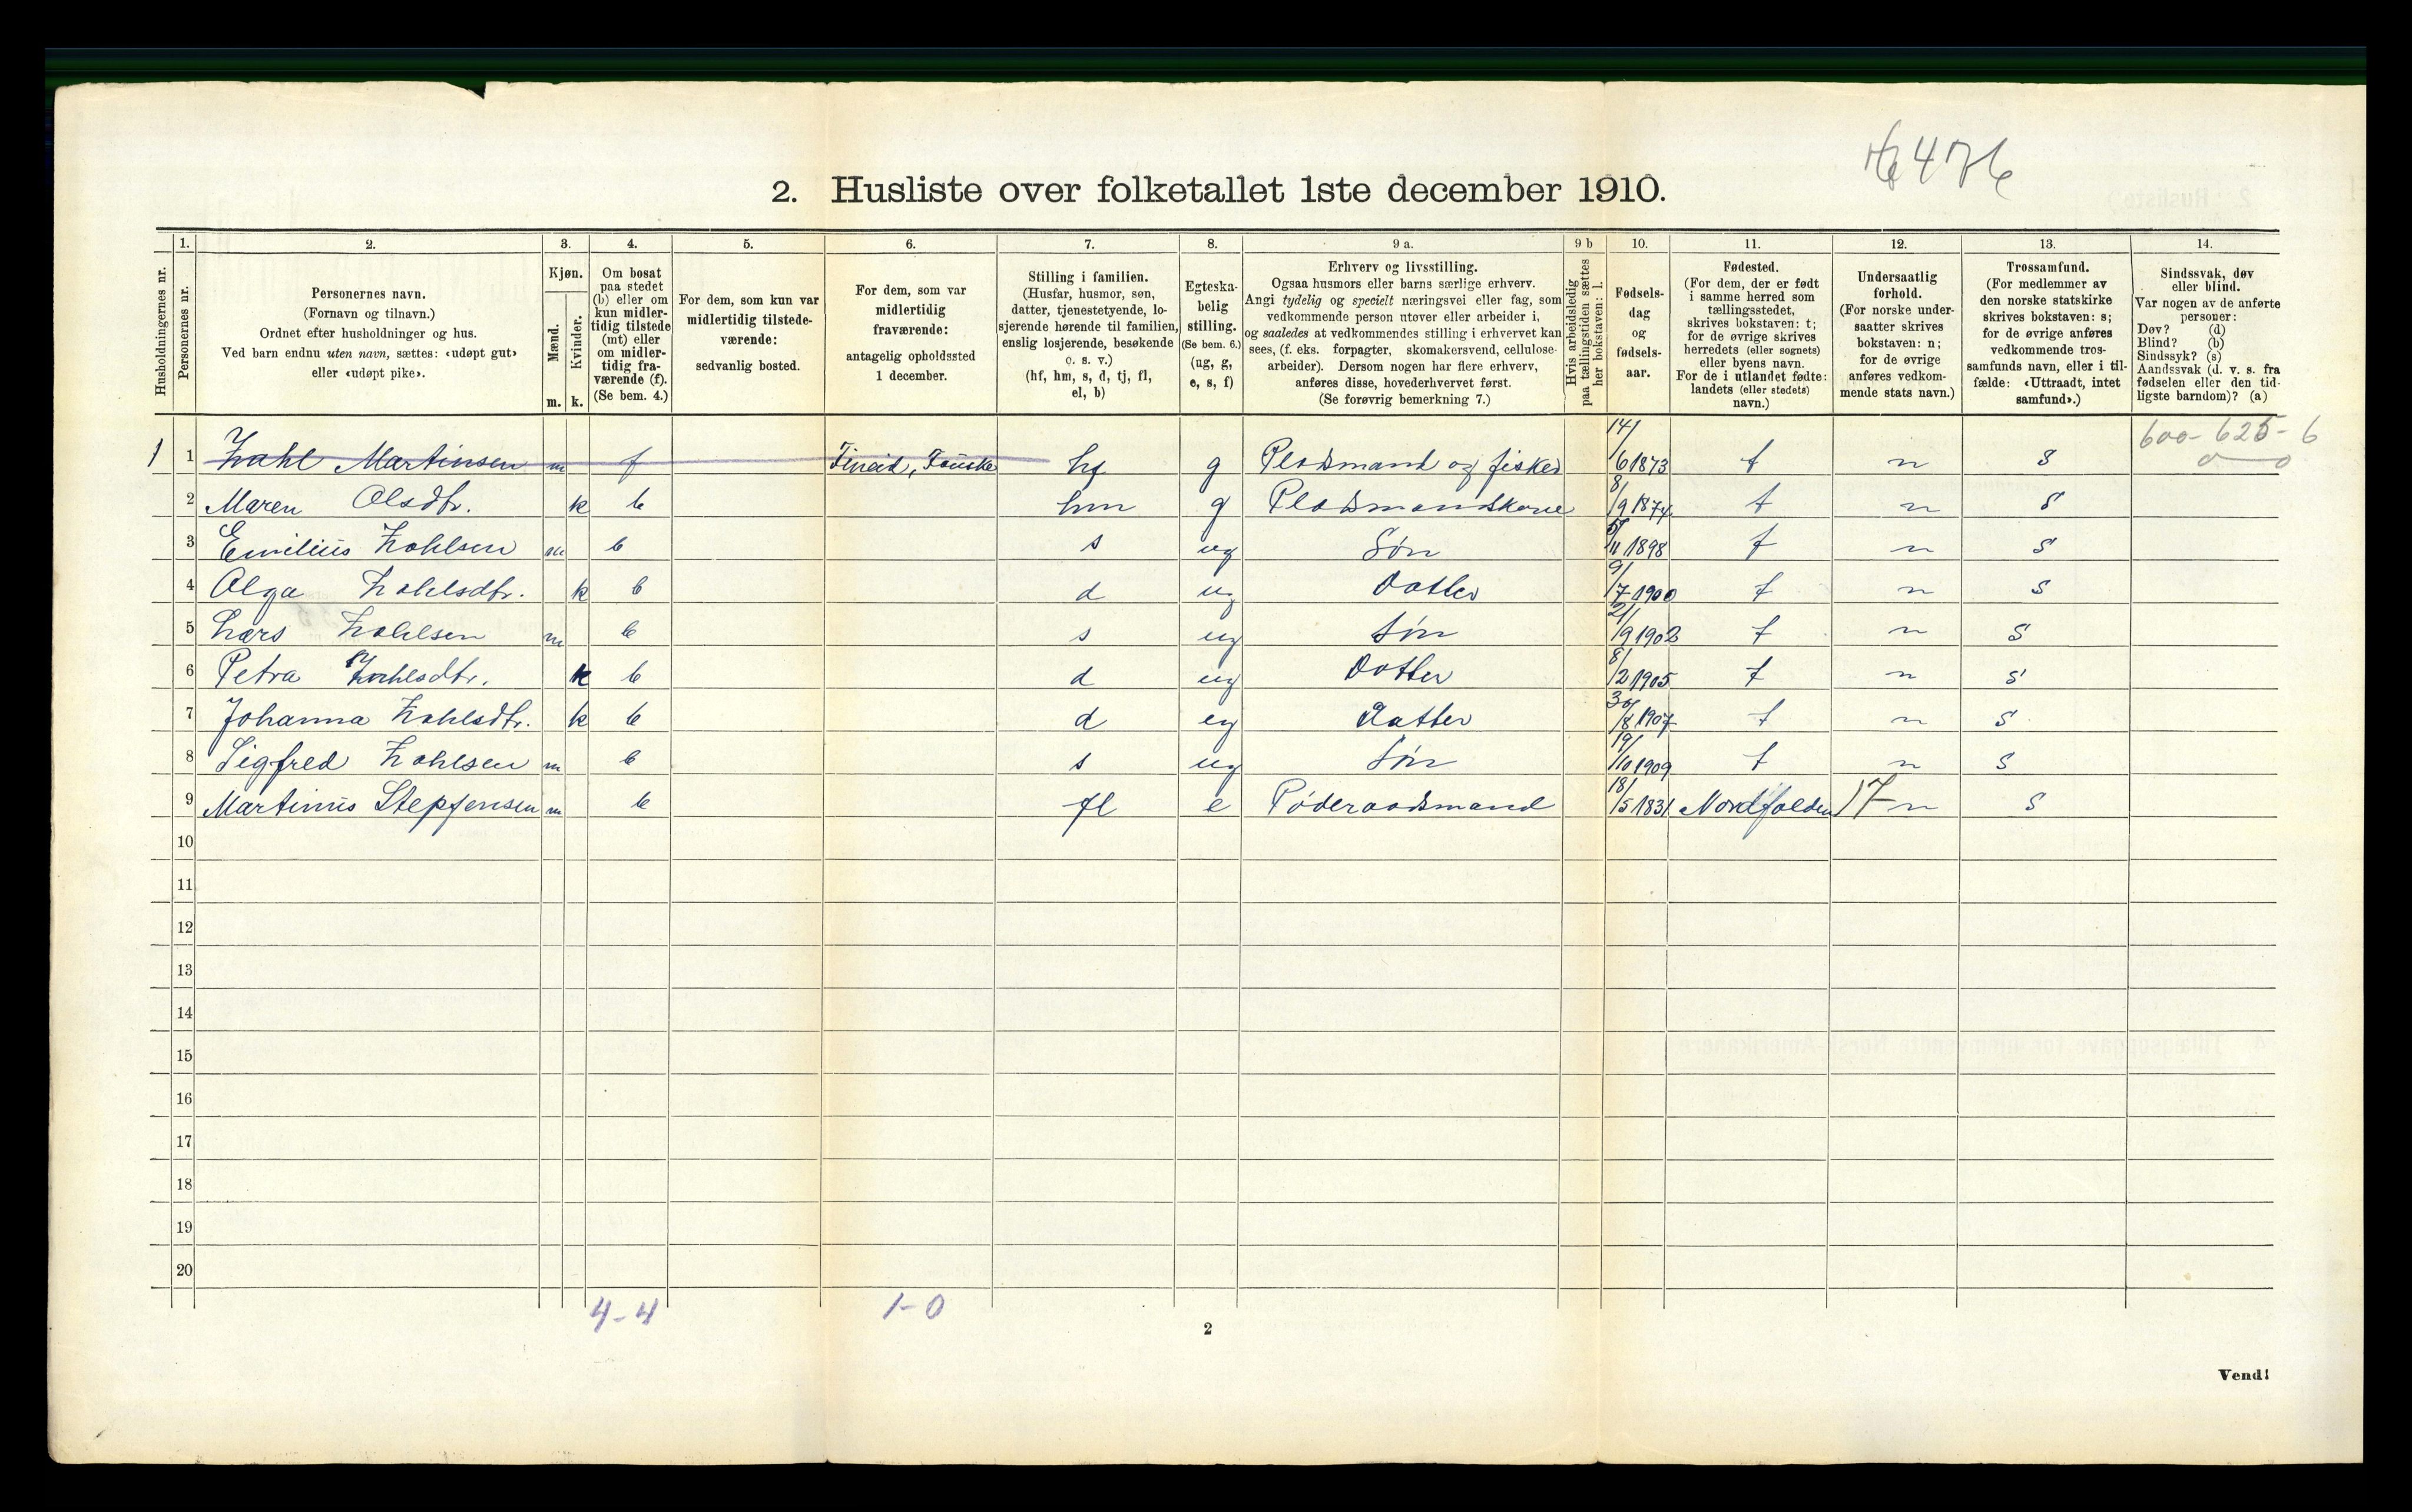 6476
2. Husliste over folketallet 1ste december 1910.
Husholdningernes nr.
1.
Personernes nr.
2.
Personernes navn.
(Fornavn og tilnavn.)
Ordnet efter husholdninger og hus.
Ved barn endnu uten navn, sættes: «udøpt gut»
eller «udøpt pike».
3.
Kjøn.
Mænd.
m.
Kvinder.
k.
4.
Om bosat
paa stedet
(b) eller om
kun midler-
tidig tilstede
(mt) eller
om midler-
tidig fra-
værende (f).
(Se bem. 4.)
5.
For dem, som kun var
midlertidig tilstede-
værende:
sedvanlig bosted.
6.
For dem, som var
midlertidig
fraværende:
antagelig opholdssted
1 december.
7.
Stilling i familien.
(Husfar, husmor, søn,
datter, tjenestetyende, lo-
sjerende hørende til familien,
enslig losjerende, besøkende
o. s. v.)
(hf, hm, s, d, tj, fl,
el, b)
8.
Egteska-
belig
stilling.
(Se bem. 6.)
(ug, g,
e, s, f)
9 a.
Erhverv og livsstilling.
Ogsaa husmors eller barns særlige erhverv.
Angi tydelig og specielt næringsvei eller fag, som
vedkommende person utøver eller arbeider i,
og saaledes at vedkommendes stilling i erhvervet kan
sees, (f. eks. forpagter, skomakersvend, cellulose-
arbeider). Dersom nogen har flere erhverv,
anføres disse, hovederhvervet først.
(Se forøvrig bemerkning 7.)
9 b
Hvis arbeidsledig
paa tællingstiden sættes
her bokstaven: l.
10.
Fødsels-
dag
og
fødsels-
aar.
11.
Fødested.
(For dem, der er født
i samme herred som
tællingsstedet,
skrives bokstaven: t;
for de øvrige skrives
herredets (eller sognets)
eller byens navn.
For de i utlandet fødte:
landets (eller stedets)
navn.)
12.
Undersaatlig
forhold.
(For norske under-
saatter skrives
bokstaven: n;
for de øvrige
anføres vedkom-
mende stats navn.)
13.
Trossamfund.
(For medlemmer av
den norske statskirke
skrives bokstaven: s;
for de øvrige anføres
vedkommende tros-
samfunds navn, eller i til-
fælde: «Uttraadt, intet
samfund».)
14.
Sindssvak, døv
eller blind.
Var nogen av de anførte
personer:
Døv? (d)
Blind? (b)
Sindssyk? (s)
Aandssvak (d. v. s. fra
fødselen eller den tid-
ligste barndom)? (a)
600-625-6
0 0
1 1 Zahl Martinsen m f Fineid, Fauske hf g Pladsmand og fisker 14/6 1873 t n s
2 Maren Olsdtr. k b hm g Pladsmandskone 8/9 1874 t n s
3 Emilius Zahlsen m b s ug Søn 5/11 1898 t n s
4 Olga Zahlsdtr. k b d ug Datter 9/7 1900 t n s
5 Lars Zahlsen m b s ug Søn 21/9 1902 t n s
6 Petra Zahlsdtr. k b d ug Datter 8/2 1905 t n s
7 Johanna Zahlsdtr. k b d ug Datter 30/8 1907 t n s
8 Sigfred Zahlsen m b s ug Søn 19/10 1909 t n s
9 Martinus Steffensen m b fl e Føderaadsmand 18/5 1831 Nordfolden 17 n s
10
11
12
13
14
15
16
17
18
19
20
4-4 1-0
2
Vend!